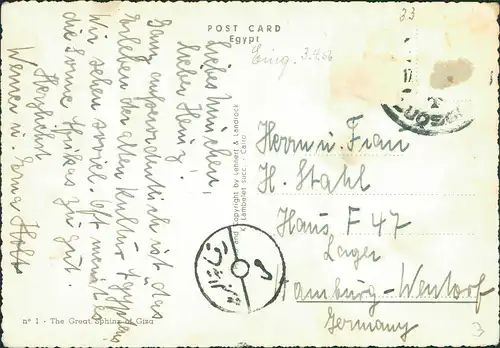 POST CARD
Egypt
Eing. 3.4.56
33
17
Liebes Minchen,
lieber Heinz!
Ganz außerordentlich ist das
Erleben der alten Kultur Ägyptens
Wir sehen soviel. Oft meint es
die Sonne Afrikas zu gut.
Herzlichst
Werner u. Erna
Copyright by Lehnert & Landrock
K. Lambelet succ. - Cairo
Herrn u. Frau
H. Stahl
Haus F 47
Lager
Hamburg-Wentorf
Germany
n° 1 - The Great Sphinx of Giza